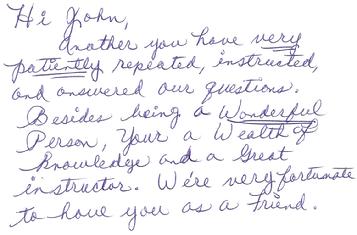 Hi John,
Another you have very
patiently repeated, instructed,
and answered our questions.
Besides being a Wonderful
Person, Your a Wealth of
Knowledge and a Great
instructor. We're very fortunate
to have you as a Friend.